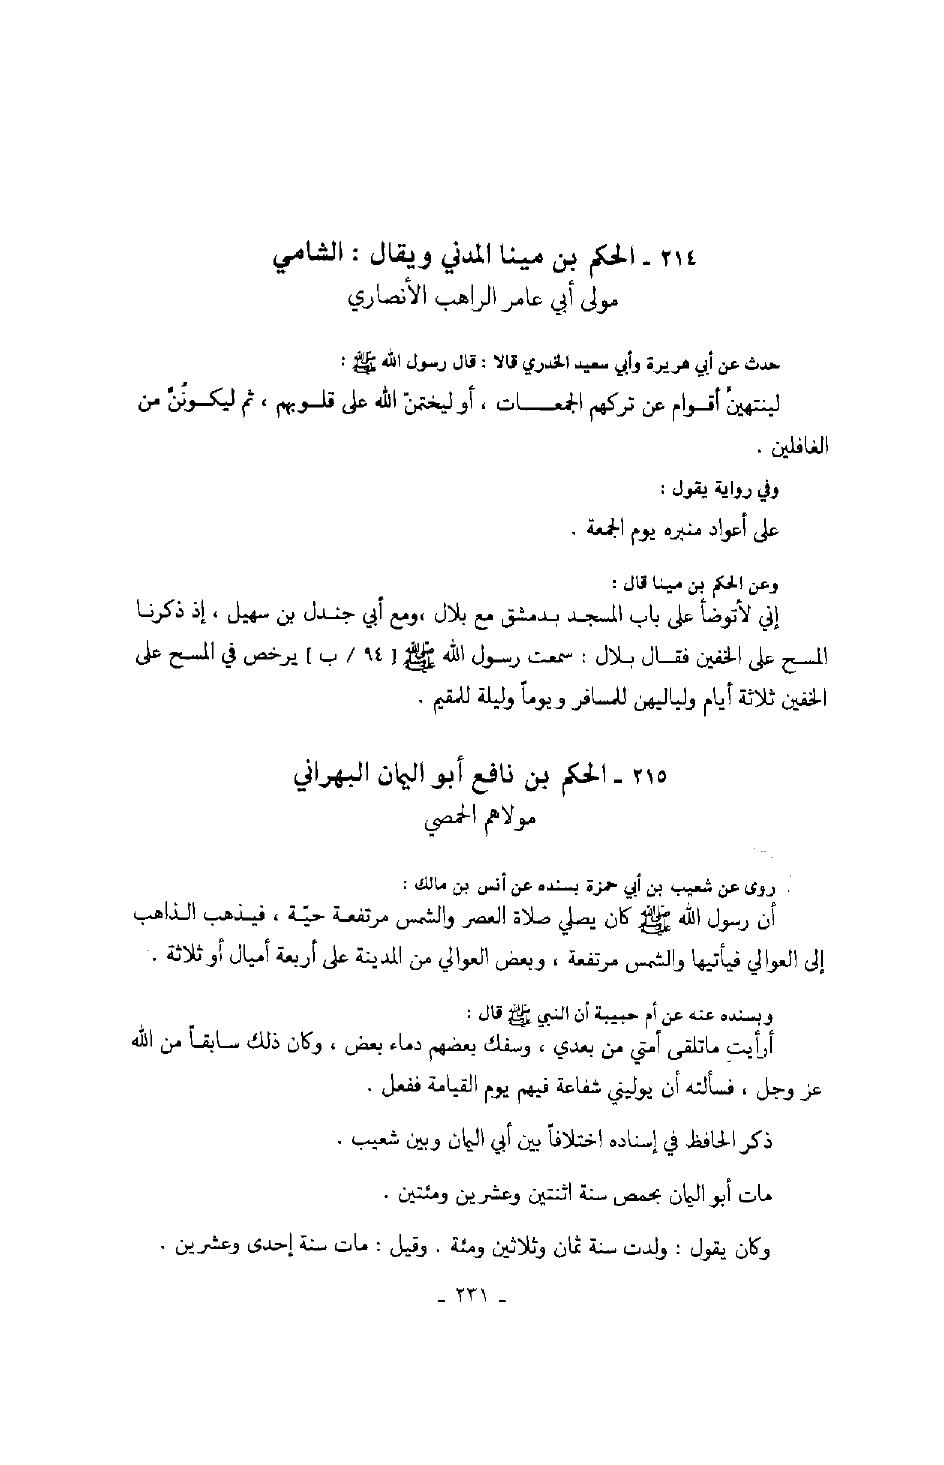 ٢١٤ ـ الحكم بن مينا المدني ويقال : الشامي
مولى أبي عامر الراهب الأنصاري
حدث عن أبي هريرة وأبي سعيد الخدري قالا : قال رسول الله ﷺ :
لينتهينَّ أقوام عن تركهم الجمعات ، أو ليختمنّ الله على قلوبهم ، ثم ليكونُنَّ من
الغافلين .
وفي رواية يقول :
على أعواد منبره يوم الجمعة .
وعن الحكم بن مينا قال :
إني لأتوضأ على باب المسجد بدمشق مع بلال ،ومع أبي جندل بن سهيل ، إذ ذكرنا
المسح على الخفين فقال بلال : سمعت رسول الله ﷺ [ ٩٤ / ب ] يرخص في المسح على
الخفين ثلاثة أيام ولياليهن للمسافر ويوماً وليلة للمقيم .
٢١٥ ـ الحكم بن نافع أبو اليمان البهراني
مولاهم الحمصي
روى عن شعيب بن أبي حمزة بسنده عن أنس بن مالك :
أن رسول الله ﷺ كان يصلي صلاة العصر والشمس مرتفعة حيّة ، فيذهب الذاهب
إلى العوالي فيأتيها والشمس مرتفعة ، وبعض العوالي من المدينة على أربعة أميال أو ثلاثة .
وبسنده عنه عن أم حبيبة أن النبي ﷺ قال :
أرأيت ماتلقى أمتي من بعدي ، وسفك بعضهم دماء بعض ، وكان ذلك سابقاً من الله
عز وجل ، فسألته أن يوليني شفاعة فيهم يوم القيامة ففعل .
ذكر الحافظ في إسناده اختلافاً بين أبي اليمان وبين شعيب .
مات أبو اليمان بحمص سنة اثنتين وعشرين ومئتين .
وكان يقول : ولدت سنة ثمان وثلاثين ومئة . وقيل : مات سنة إحدى وعشرين .
ـ ٢٣١ ـ